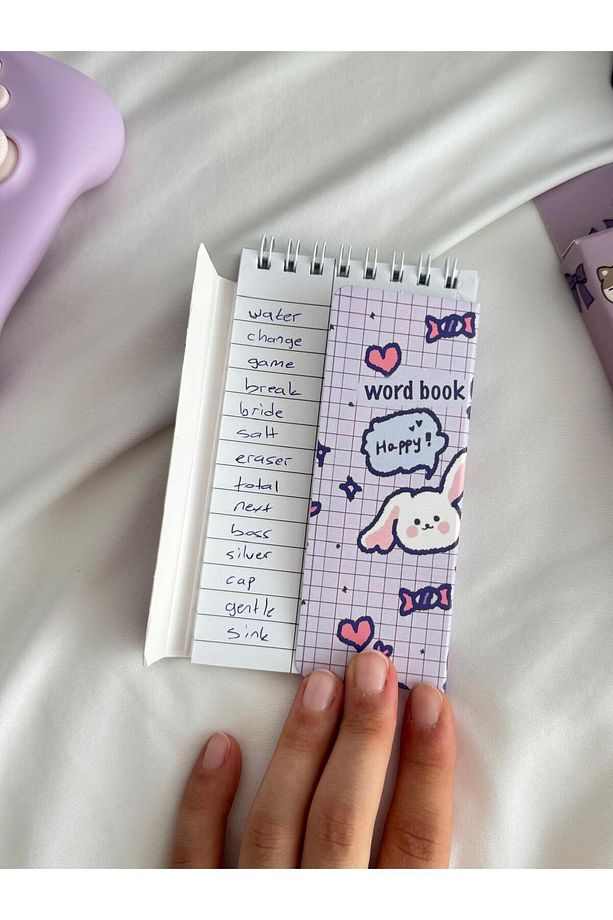 water
change
game
break
bride
salt
eraser
total
next
boss
silver
cap
gentle
sink
word book
Happy!